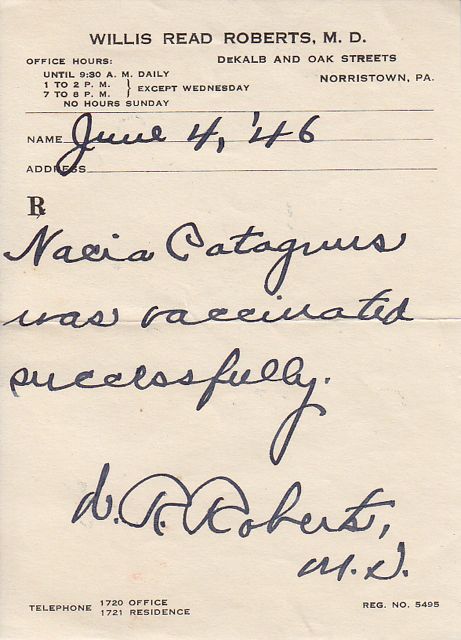 WILLIS READ ROBERTS, M. D.
OFFICE HOURS: DEKALB AND OAK STREETS
UNTIL 9:30 A. M. DAILY NORRISTOWN, PA.
1 TO 2 P. M. } EXCEPT WEDNESDAY
7 TO 8 P. M.
NO HOURS SUNDAY
NAME June 4, '46
ADDRESS
℞
Nacia Catagnus
was vaccinated
successfully.
W. R. Roberts,
M.D.
TELEPHONE 1720 OFFICE REG. NO. 5495
1721 RESIDENCE